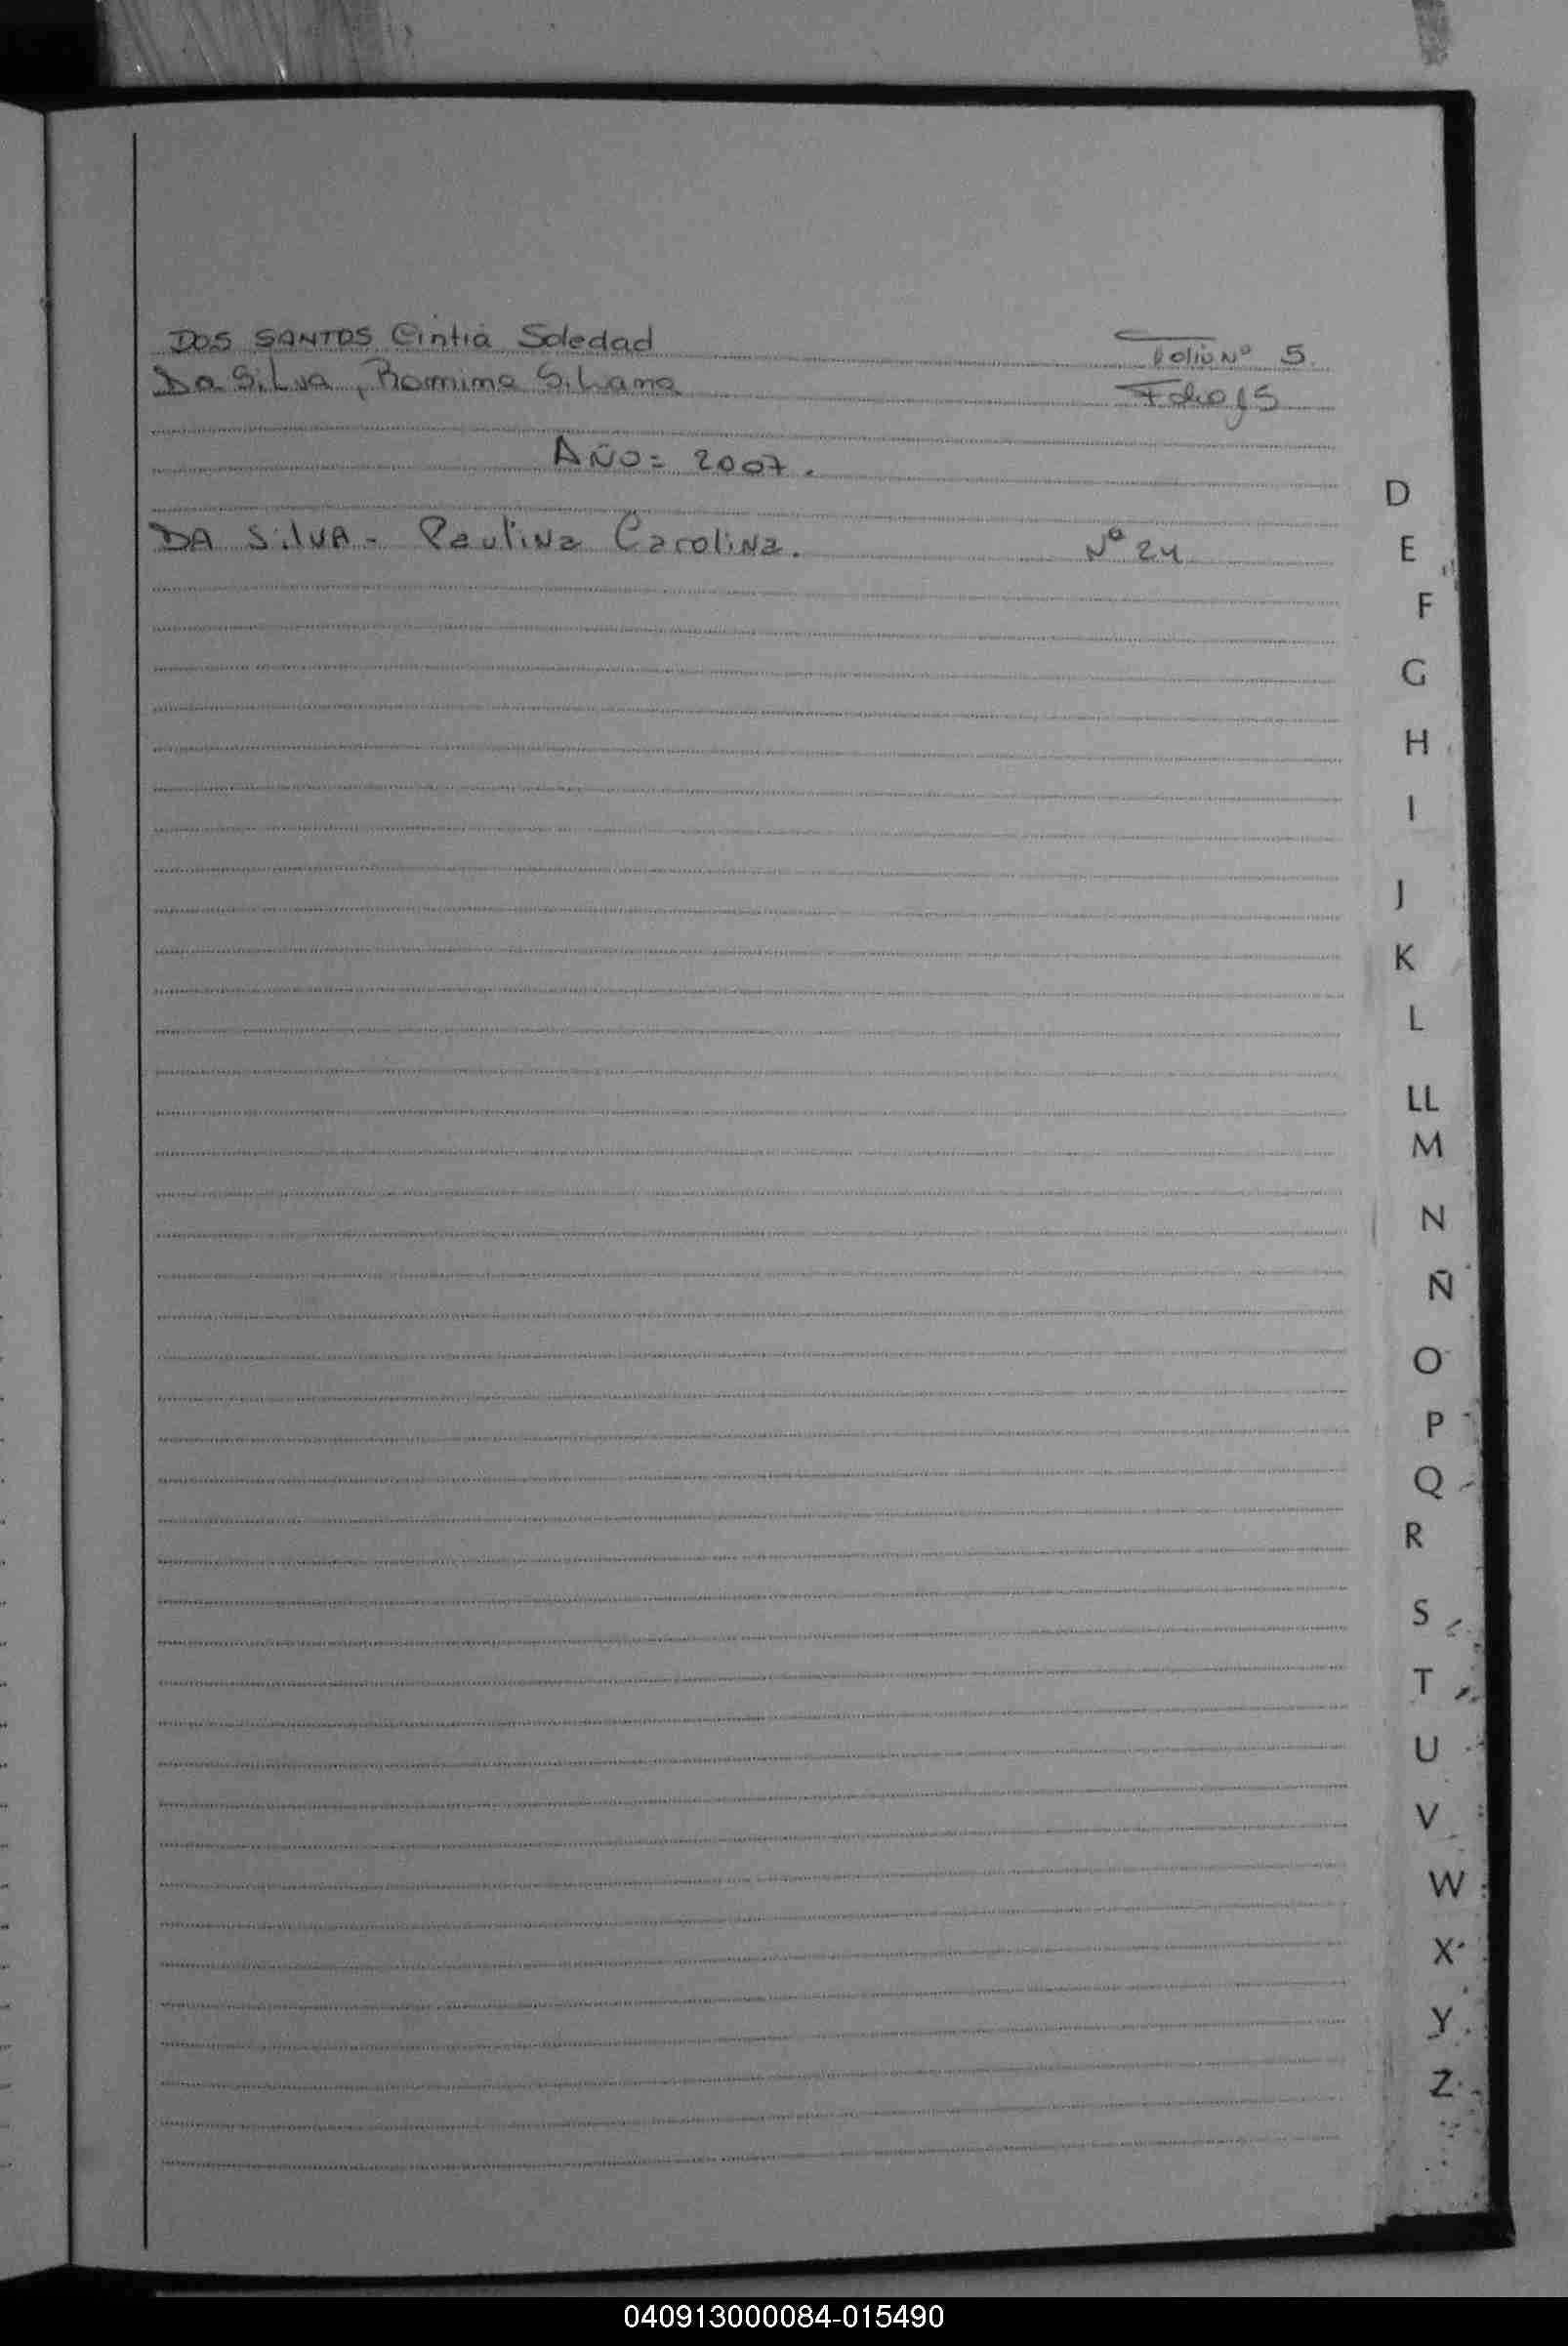 DOS SANTOS Cintia Soledad Folio Nº 5.
Da Silva, Romina Silvana Folio 15
AÑO = 2007.
DA SilVA - Paulina Carolina. Nº 24
D
E
F
G
H
I
J
K
L
LL
M
N
Ñ
O
P
Q
R
S
T
U
V
W
X
Y
Z
040913000084-015490